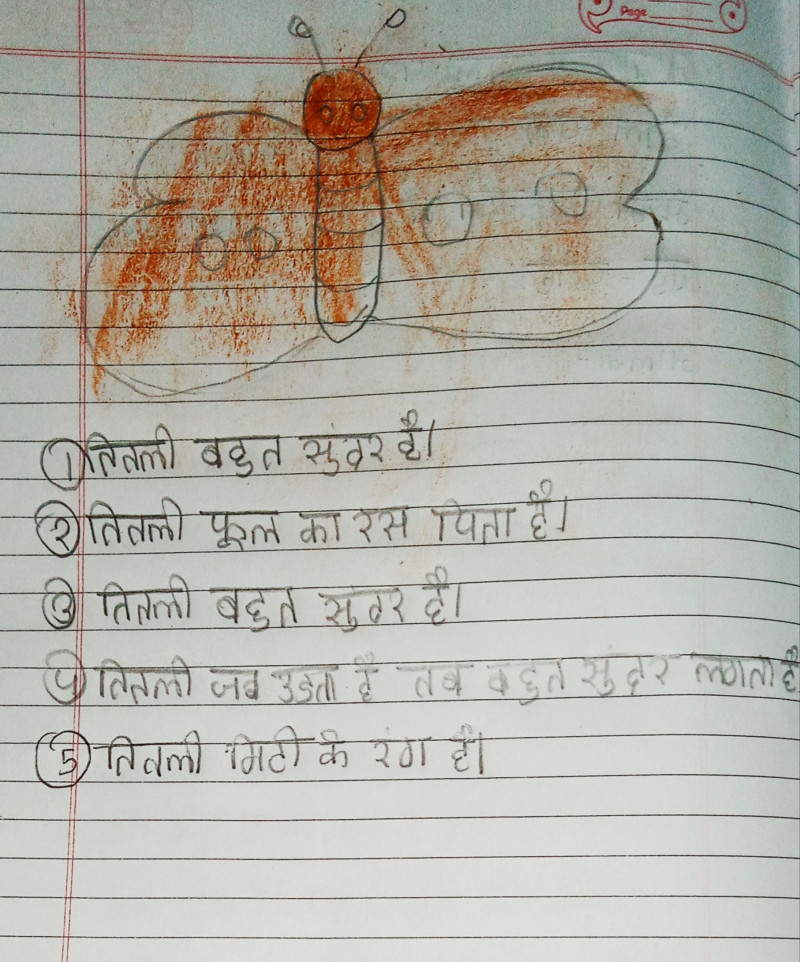 Page
① तितली बहुत सुंदर है।
② तितली फूल का रस पिता है।
③ तितली बहुत सुंदर है।
④ तितली जब उडता है तब बहुत सुंदर लगता है
⑤ तितली मिटी के रंग है।